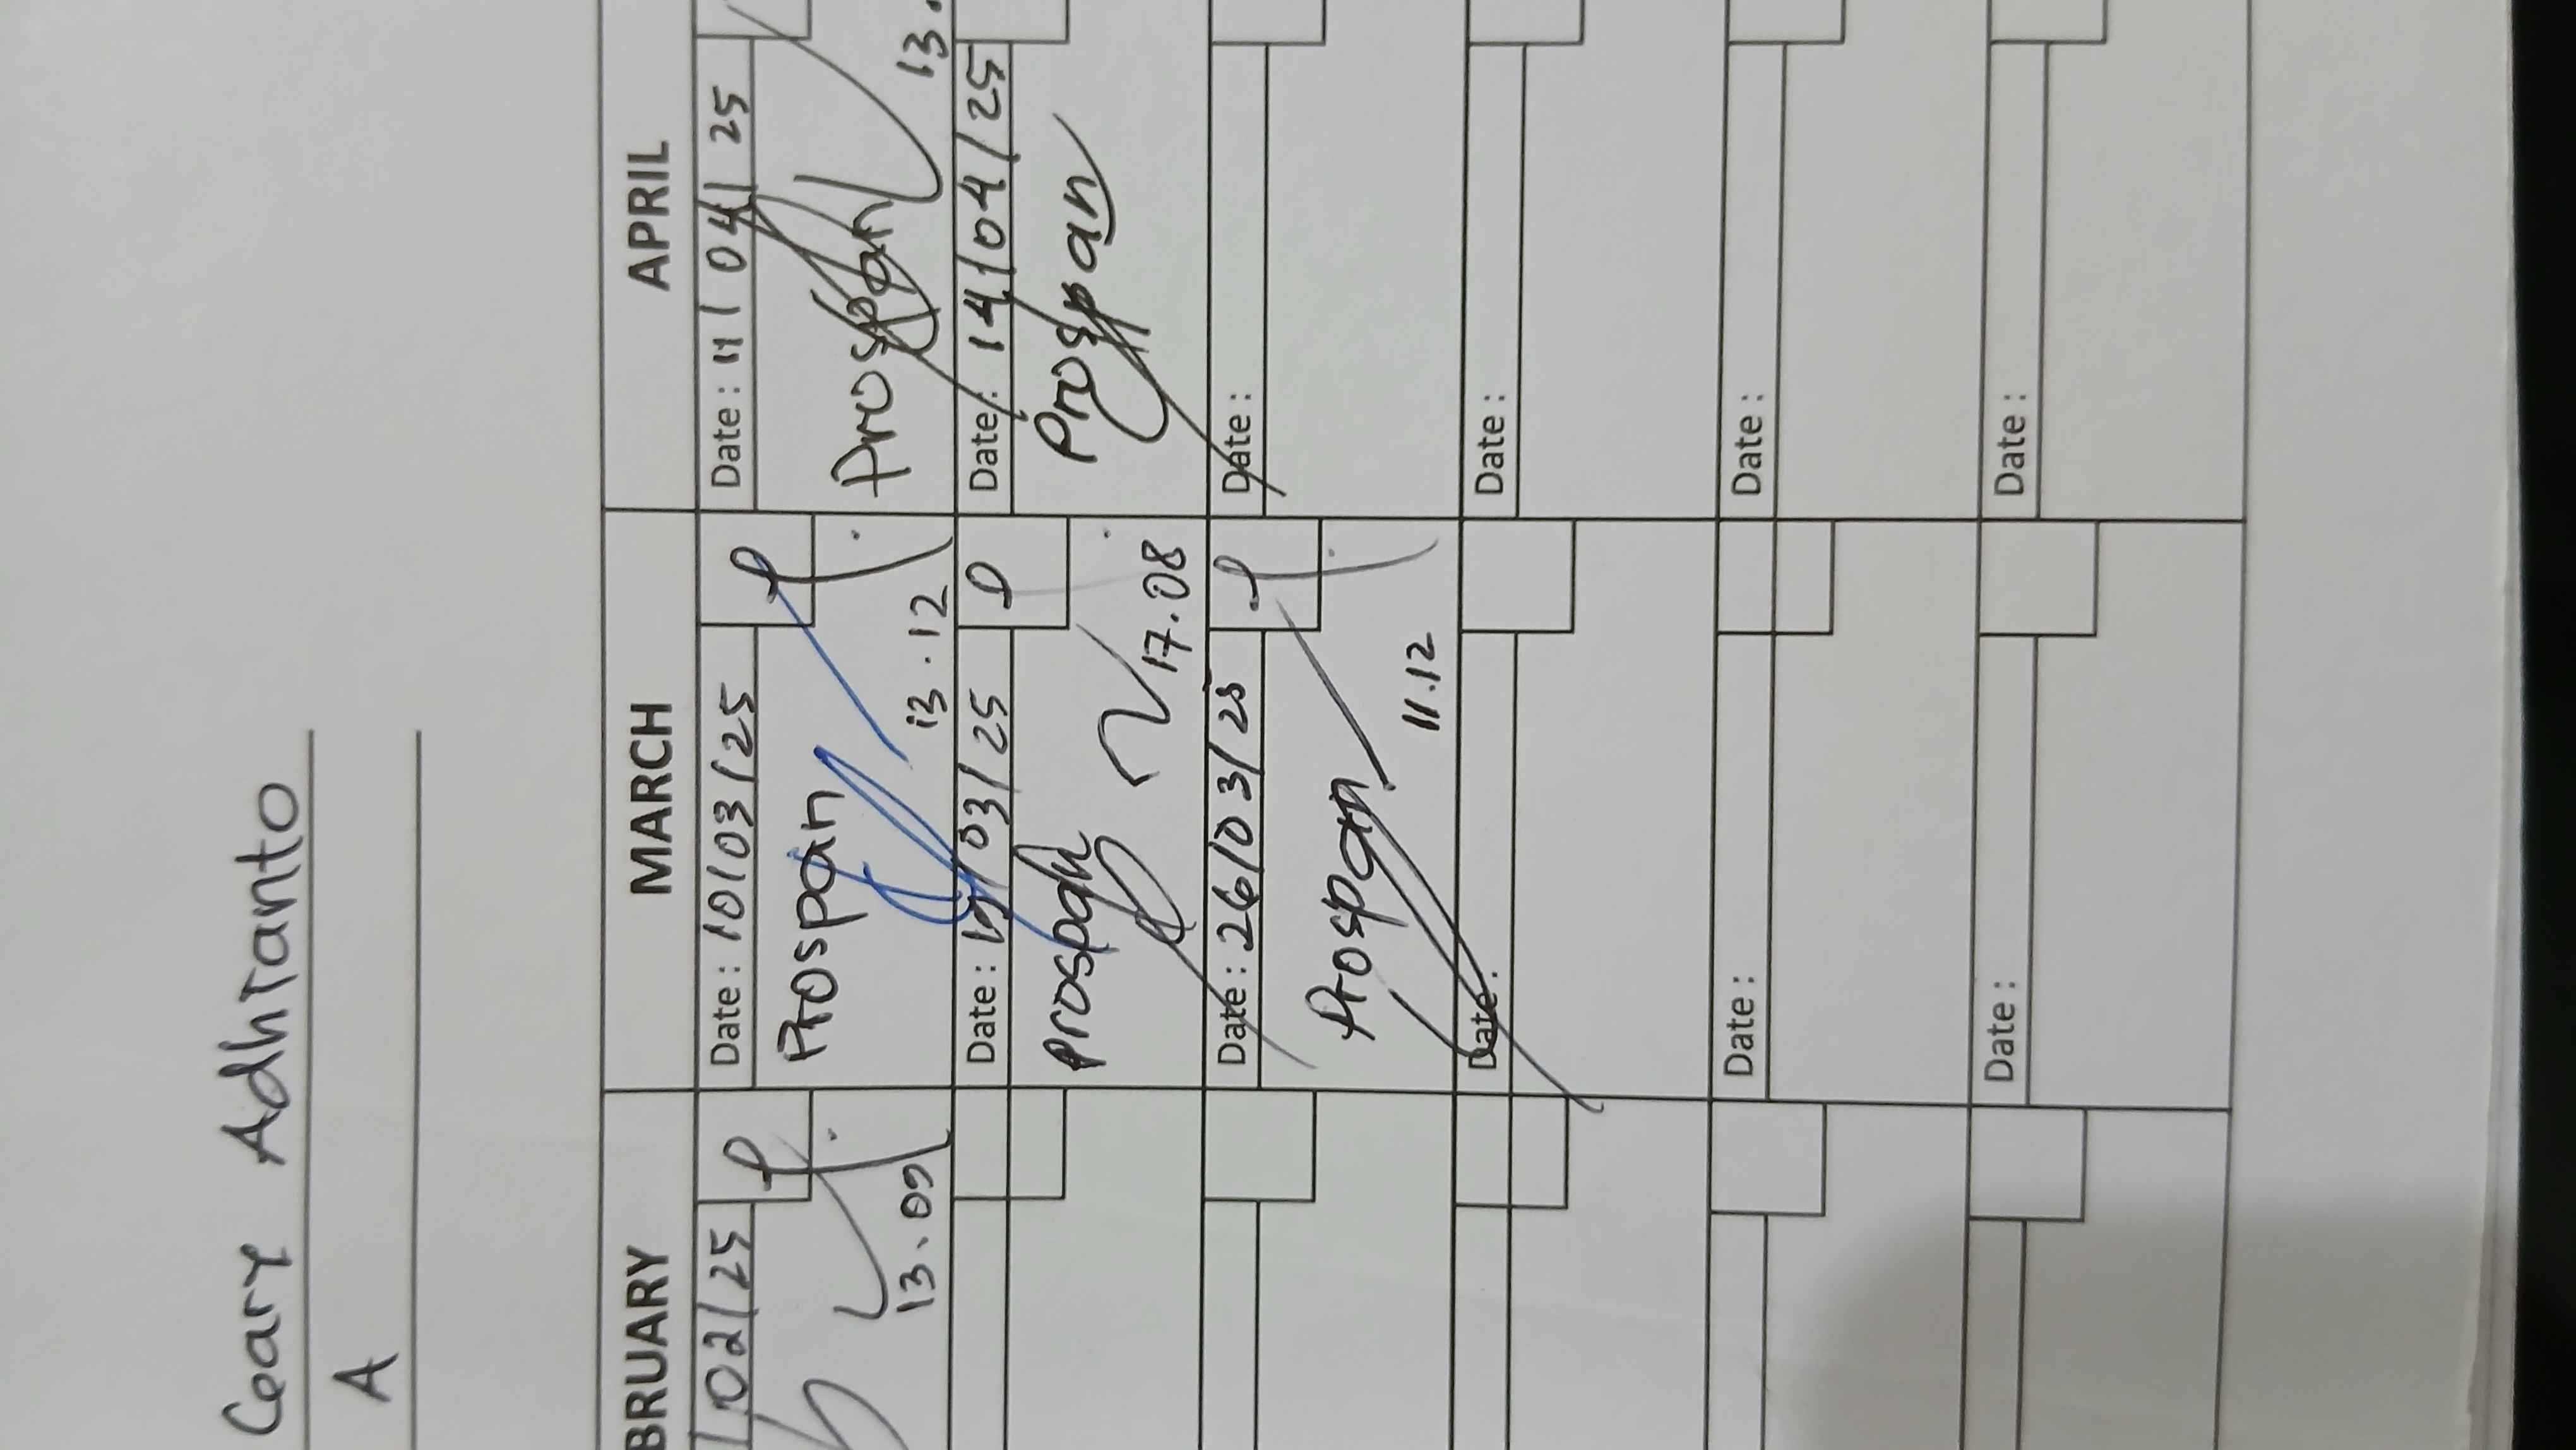 Ceary Adhitanto
A
BRUARY MARCH APRIL
02/25 Date : 10/03/25 Date : 11/04/25
Prospan Prospan
13.09 13.12 13.
Date : 19/03/25 Date : 14/04/25
Prospan Prospan
17.08
Date : 26/03/25 Date :
Prospan
11.12
Date : Date :
Date : Date :
Date : Date :